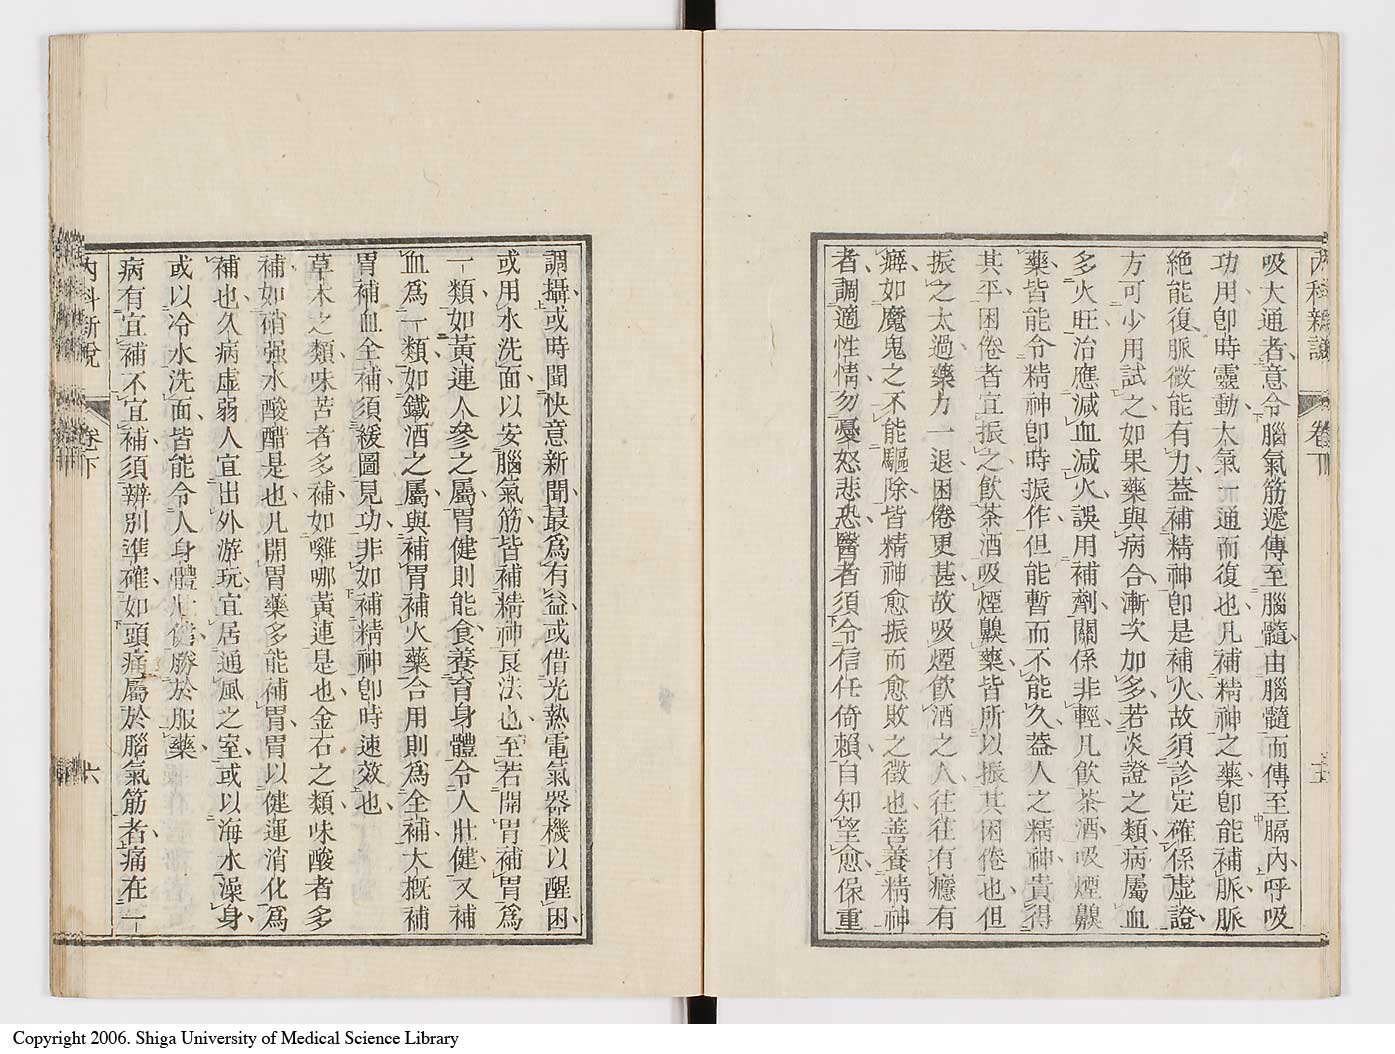 吸大通者意令腦氣筋遞傳至腦髓由腦髓而傳至膈內呼吸
功用卽時靈動太氣一通而復也凡補精神之藥卽能補脈脈
絶能復脈微能有力蓋補精神卽是補火故須診定確係虛證
方可少用試之如果藥與病合漸次加多若炎證之類病屬血
多火旺治應減血減火誤用補劑關係非輕凡飮茶酒吸煙鼻
藥皆能令精神卽時振作但能暫而不能久蓋人之精神貴得
其平困倦者宜振之飮茶酒吸煙鼻藥皆所以振其困倦也但
振之太過藥力一退困倦更甚故吸煙飮酒之人往往有癮有
癖如魔鬼之不能驅除皆精神愈振而愈敗之徵也善養精神
者調適性情勿憂怒悲恐醫者須令信任倚賴自知望愈保重
調攝或時聞快意新聞最爲有益或借光熱電氣器機以醒困
或用水洗面以安腦氣筋皆補精神良法也至若開胃補胃爲
一類如黃連人參之屬胃健則能食養育身體令人壯健又補
血爲一類如鐵酒之屬與補胃補火藥合用則爲全補大槪補
胃補血全補須緩圖見功非如補精神卽時速效也
草木之類味苦者多補如囉哪黃連是也金石之類味酸者多
補如硝强水酸醋是也凡開胃藥多能補胃胃以健運消化爲
補也久病虛弱人宜出外游玩宜居通風之室或以海水澡身
或以冷水洗面皆能令人身體壯健勝於服藥
病有宜補不宜補須辨別準確如頭痛屬於腦氣筋者痛在一
內科新說
卷下
六
Copyright 2006. Shiga University of Medical Science Library